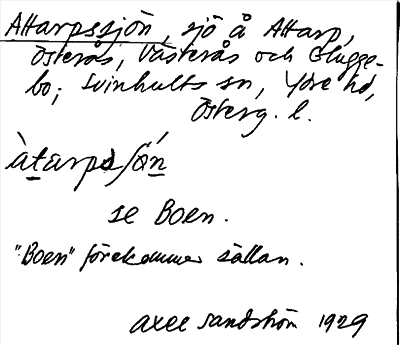 Attarpssjön, sjö å Attarp,
Österås, Västerås och Glugge-
bo; Svinhults sn, Ydre hd,
Österg. l.
àtarpsʃö́n
se Boen.
"Boen" förekommer sällan.
Axel Sandström 1929